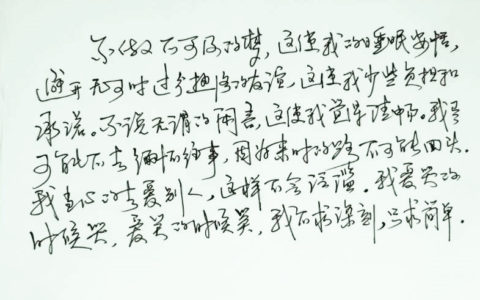 不做不可及的梦，这使我的睡眠安恬，
避开无事时过分热络的友谊，这使我少些负担和
承诺。不说无谓的闲言，这使我觉得清畅。我尽
可能不去缅怀往事，因为来时的路不可能回头。
我当心的去爱别人，这样不会泛滥。我爱哭的
时候哭，爱笑的时候笑，我不求深刻，只求简单.